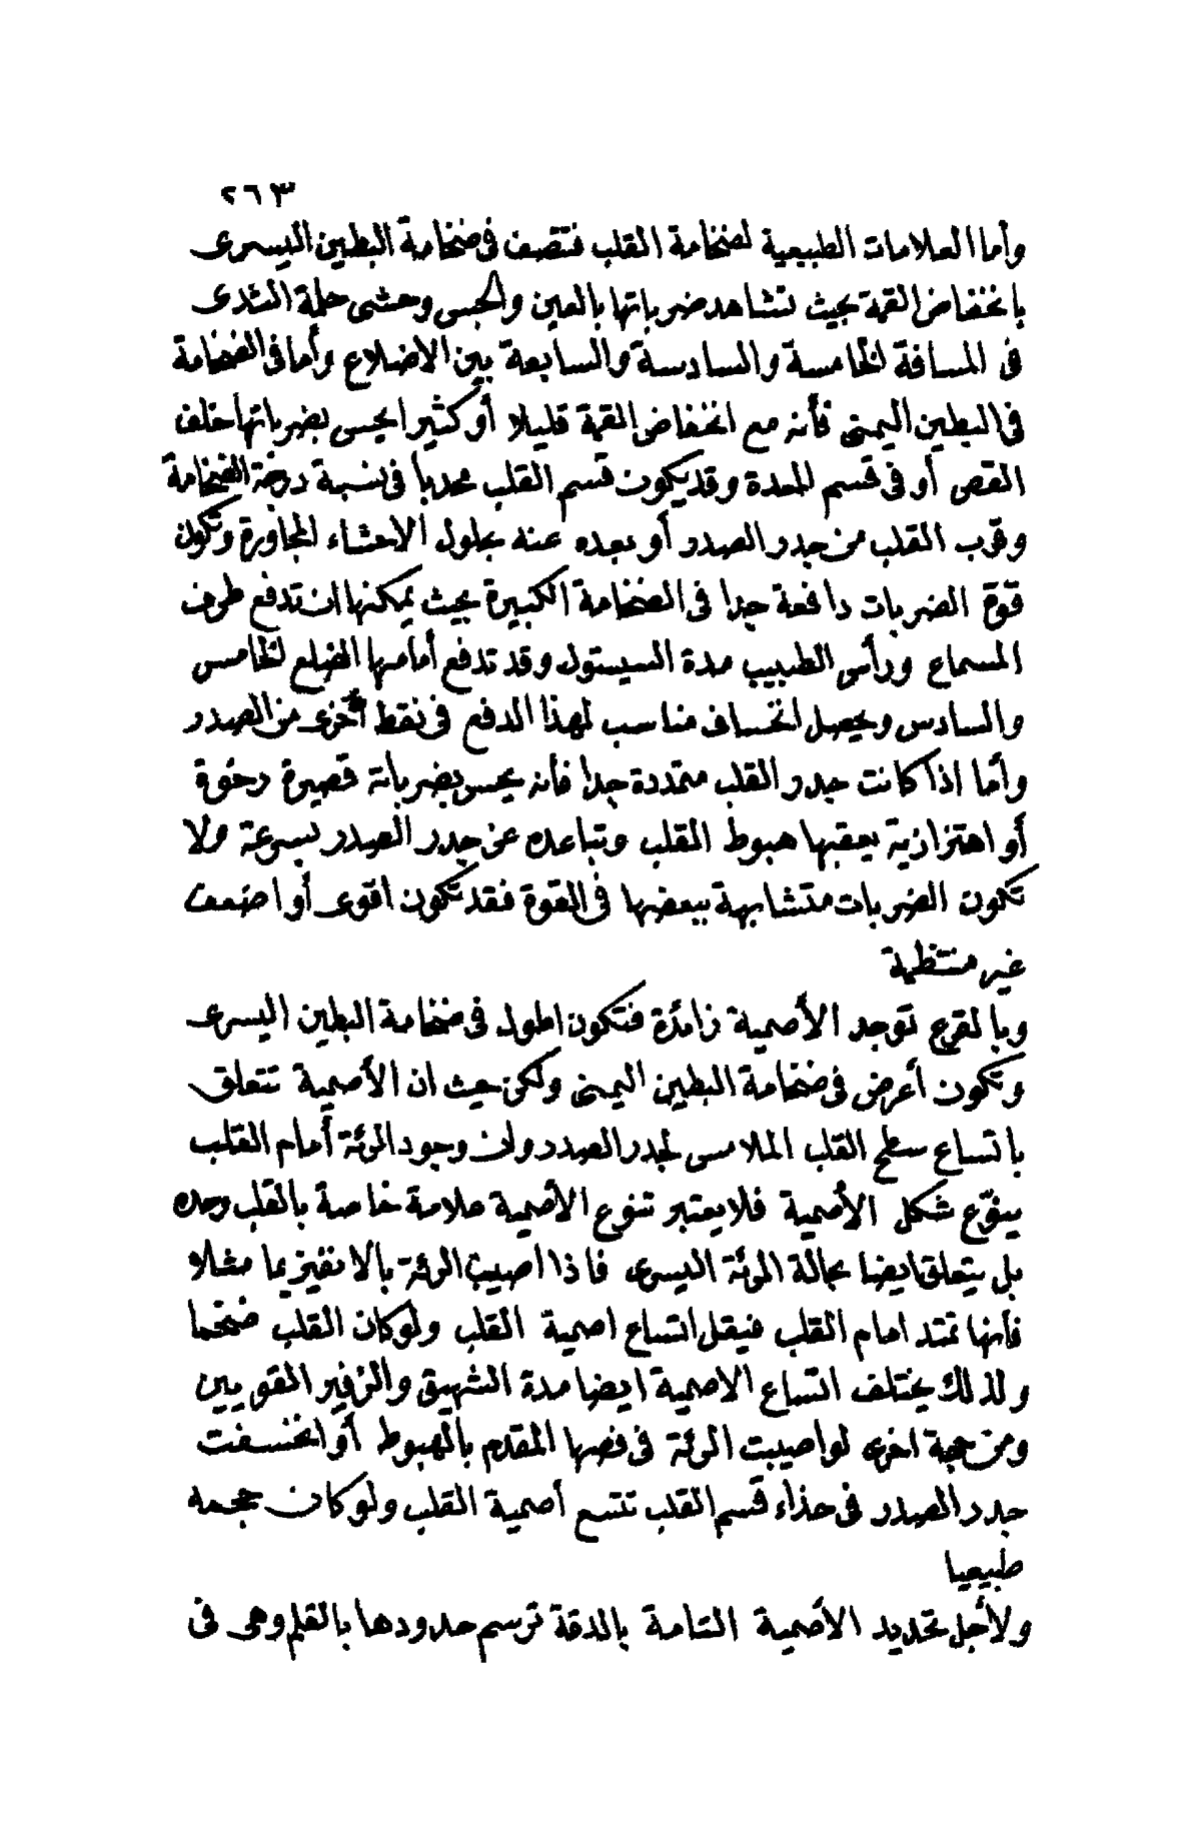 ٢٦٣
وأما العلامات الطبيعية لضخامة القلب فتتصف فى ضخامة البطين اليسرى
بانخفاض القمة بحيث تشاهد ضرباتها بالعين والجس وحشى حلمة الثدى
فى المسافة الخامسة والسادسة والسابعة بين الاضلاع وأما فى الضخامة
فى البطين اليمنى فأنه مع انخفاض القمة قليلا أو كثيرا يحس بضرباتها خلف
القص أو فى قسم المعدة وقد يكون قسم القلب محدبا فى نسبة درجة الضخامة
وقرب القلب من جدر الصدر أو بعده عنه بحلول الاحشاء المجاورة وتكون
قوّة الضربات دافعة جدا فى الضخامة الكبيرة بحيث يمكنها ان تدفع طرف
المسماع ورأس الطبيب مدة السيستول وقد تدفع أمامها الضلع الخامس
والسادس ويحصل انخساف مناسب لهذا الدفع فى نقط أخرى من الصدر
وأما اذا كانت جدر القلب متمددة جدا فأنه يحس بضرباته قصيرة رخوة
أو اهتزازية يعقبها هبوط القلب وتباعده عن جدر الصدر بسرعة ولا
تكون الضربات متشابهة ببعضها فى القوة فقد تكون اقوى أو اضعف
غير منتظمة
وبالقرع توجد الأصمية زائدة فتكون اطول فى ضخامة البطين اليسرى
وتكون أعرض فى ضخامة البطين اليمنى ولكن حيث ان الأصمية تتعلق
باتساع سطح القلب الملامس لجدر الصدر وان وجود الرئة أمام القلب
ينوّع شكل الأصمية فلا يعتبر تنوع الأصمية علامة خاصة بالقلب وحده
بل يتعلق ايضا بحالة الرئة اليسرى فاذا اصيبت الرئة بالانفيزيما مثلا
فأنها تمتد امام القلب فيقل اتساع اصمية القلب ولو كان القلب ضخما
ولذلك يختلف اتساع الاصمية ايضا مدة الشهيق والزفير القويين
ومن جهة اخرى لو اصيبت الرئة فى فصها المقدم بالهبوط أو انخسفت
جدر الصدر فى حذاء قسم القلب تتسع أصمية القلب ولو كان حجمه
طبيعيا
ولأجل تحديد الأصمية التامة بالدقة ترسم حدودها بالقلم وهى فى